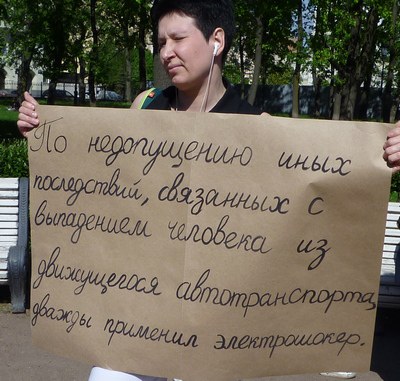 По недопущению иных
последствий, связанных с
выпадением человека из
движущегося автотранспорта,
дважды применил электрошокер.